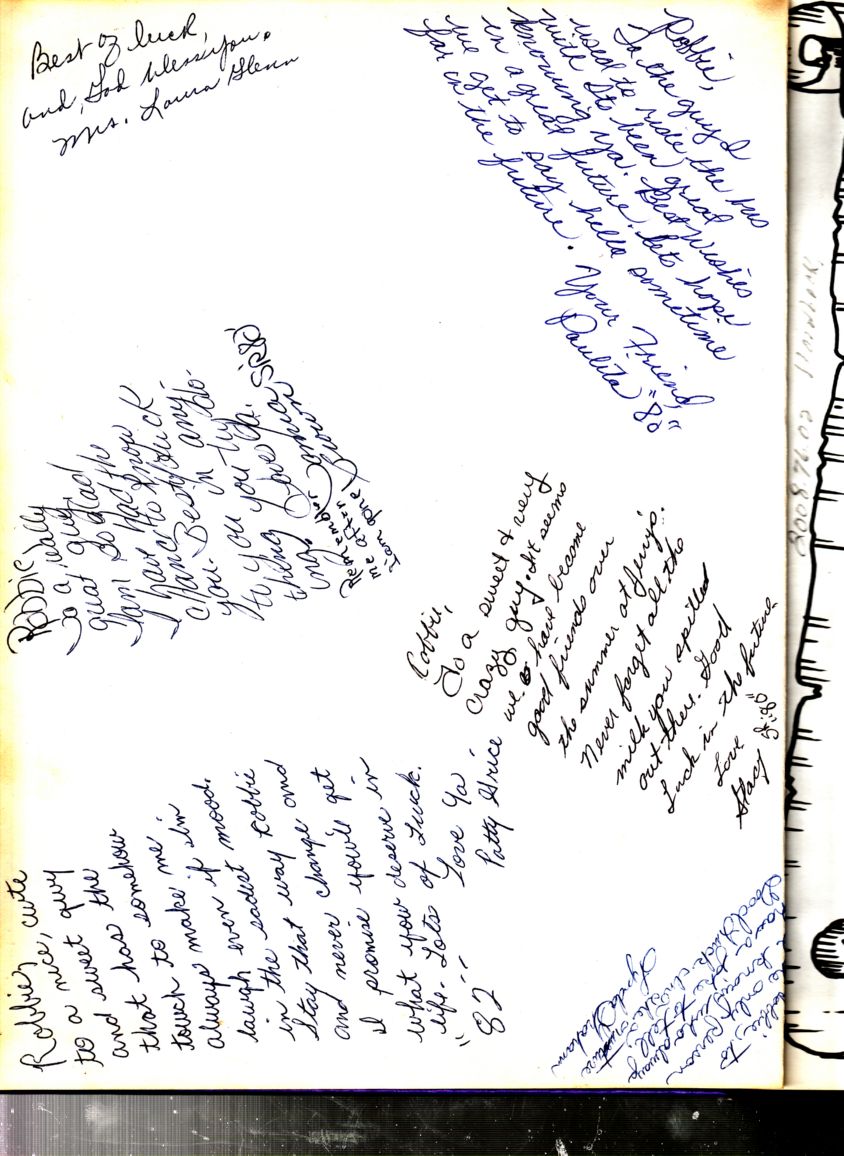 Best of luck,
and God bless you.
Mrs. Laura Glenn
Robbie,
To the guy I
used to ride the bus
with. Its been great
knowing ya. Best Wishes
in a great future. Lets hope
we get to say hello sometime
far in the future.
Your Friend,
Paulita "80"
Robbie,
To a really
great guy,
I am so glad
I have had the
chance to know
you. Best of luck
to you in any-
thing you try do-
ing. Love ya
Remember
me after
I am gone!
Robbie,
To a sweet & very
crazy guy. It seems
we have become
good friends over
the summer at Jenji's.
Never forget all the
milk you spilled
out there. Good
Luck in the future
Love
Stacy Sr. "80"
Robbie, cute
to a nice,
and sweet guy
that has the
touch to somehow
always make me
laugh even if I'm
in the sadest mood.
Stay that way Robbie
and never change and
I promise you'll get
what you deserve in
life. Lots of Luck.
Love Ya
Patty Grice
"82"
Robbie, to
the only person
I know who always
has a joke to tell.
Good luck in the
future
Lynda Graham
2008.26.02